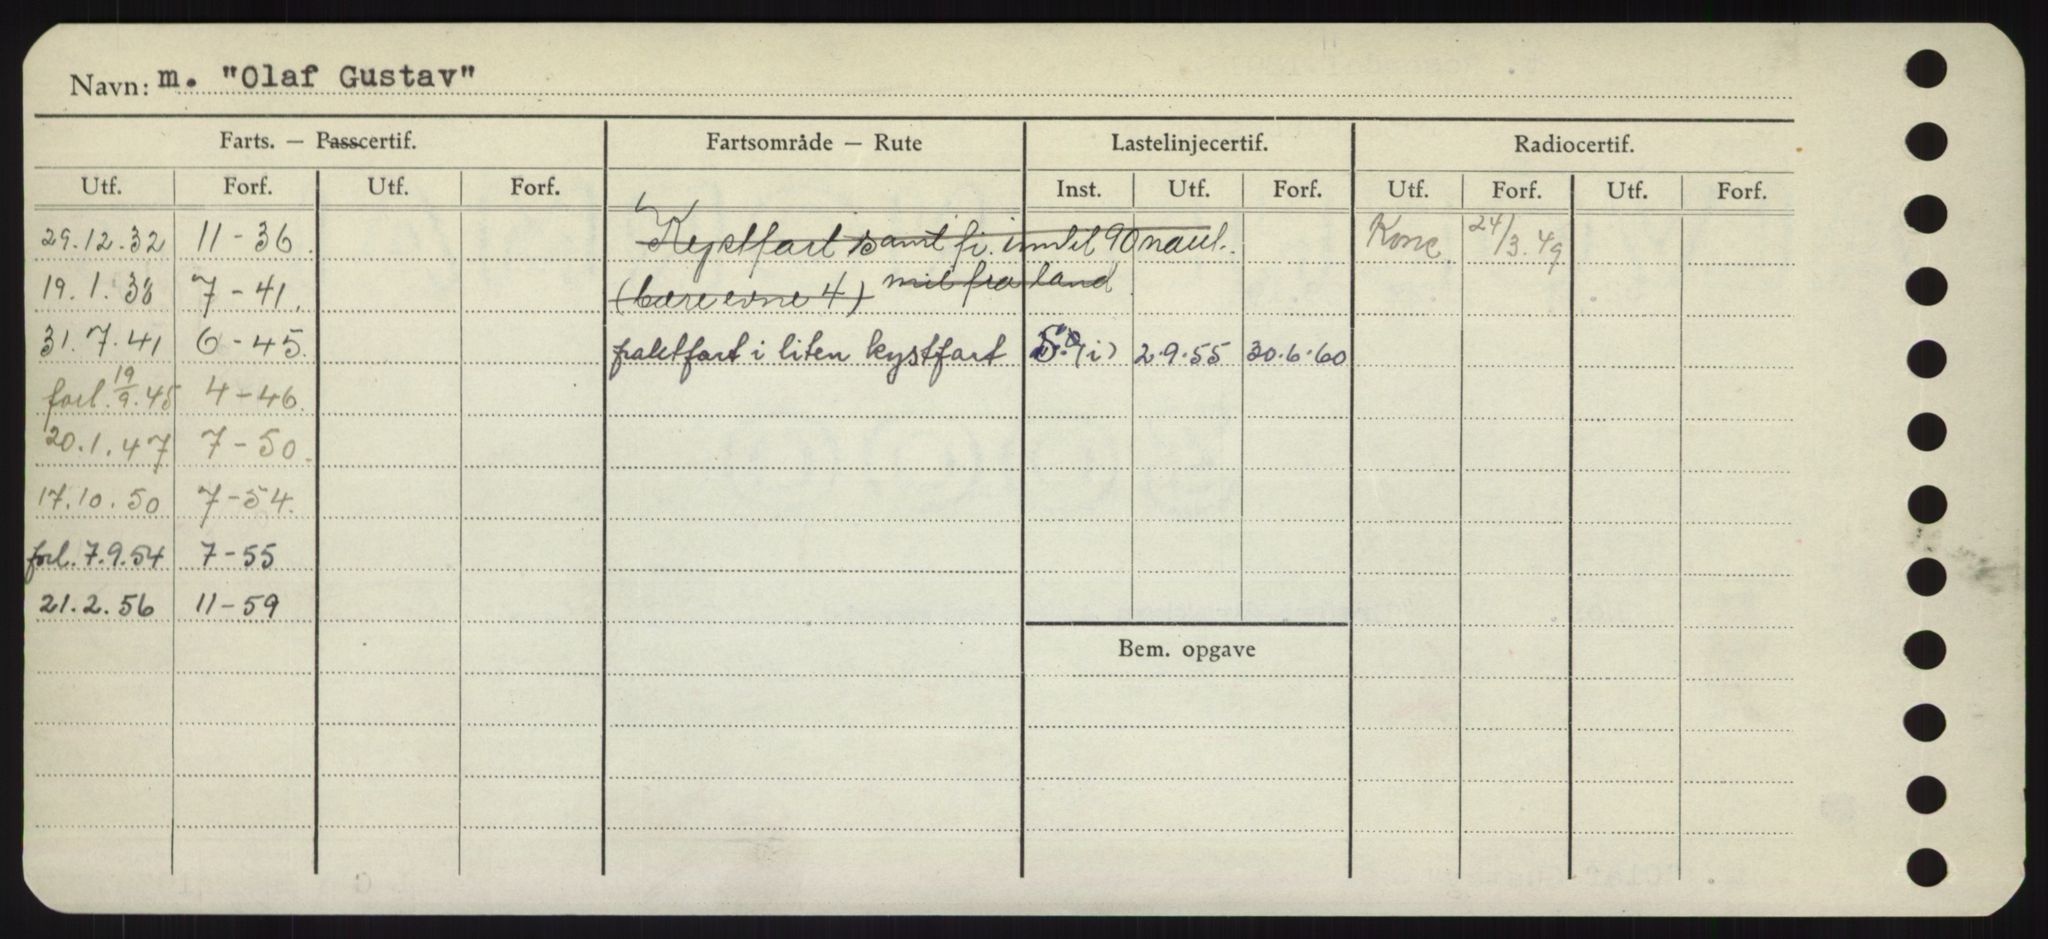 Navn: m. "Olaf Gustav"
Farts. — Passcertif. Fartsområde — Rute Lastelinjecertif. Radiocertif.
Utf. Forf. Utf. Forf. Inst. Utf. Forf. Utf. Forf. Utf. Forf.
29.12.32 11-36. Kystfart samt fi. inntil 90 naut. Konc. 24/3.49
19.1.38 7-41. (bæreevne 4) mil fra land
31.7.41 6-45. fraktfart i liten kystfart (i) 2.9.55 30.6.60
forl. 19/9.45 4-46.
20.1.47 7-50.
17.10.50 7-54.
forl. 7.9.54 7-55
21.2.56 11-59
Bem. opgave